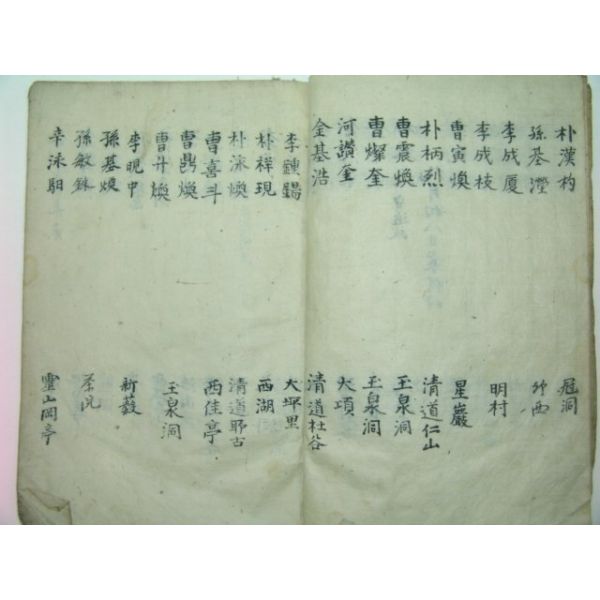 朴漢杓
孫基瀅
李成厦
李成枝
曹寅煥
朴柄烈
曹震煥
曹燦奎
河讚金
金基浩
李鍾
朴祥現
朴泳煥
曹喜斗
曹鼎煥
曹升煥
李晛中
孫基煥
孫敏銖
辛泳馹
洞
竹西
明村
星巖
清道仁山
玉泉洞
玉泉洞
大項
清道杜谷
大坪里
西湖
清道耶古
西佳亭
玉泉洞
新
茶院
靈山岡亭